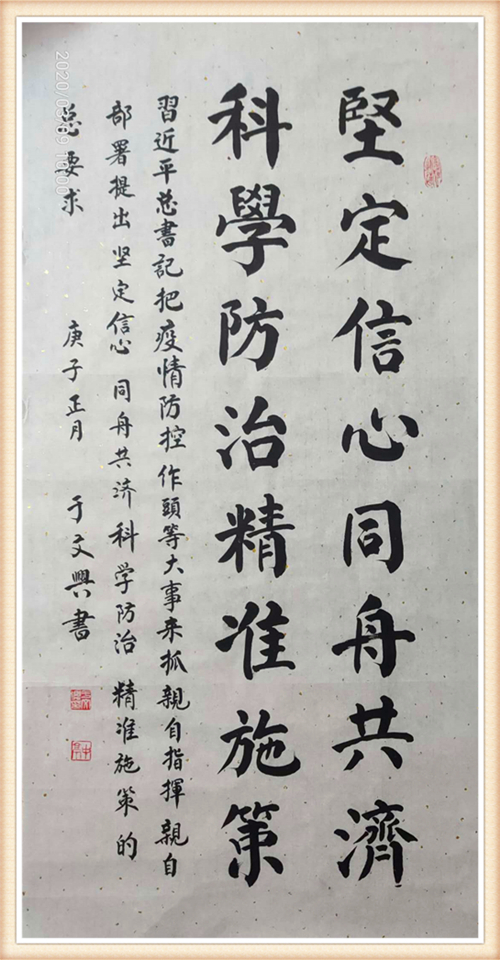 堅定信心同舟共濟
科學防治精准施策
習近平总書記把疫情防控作頭等大事来抓親自指揮親自
部署提出坚定信心同舟共济科学防治精准施策的
总要求
庚子正月 于文興書